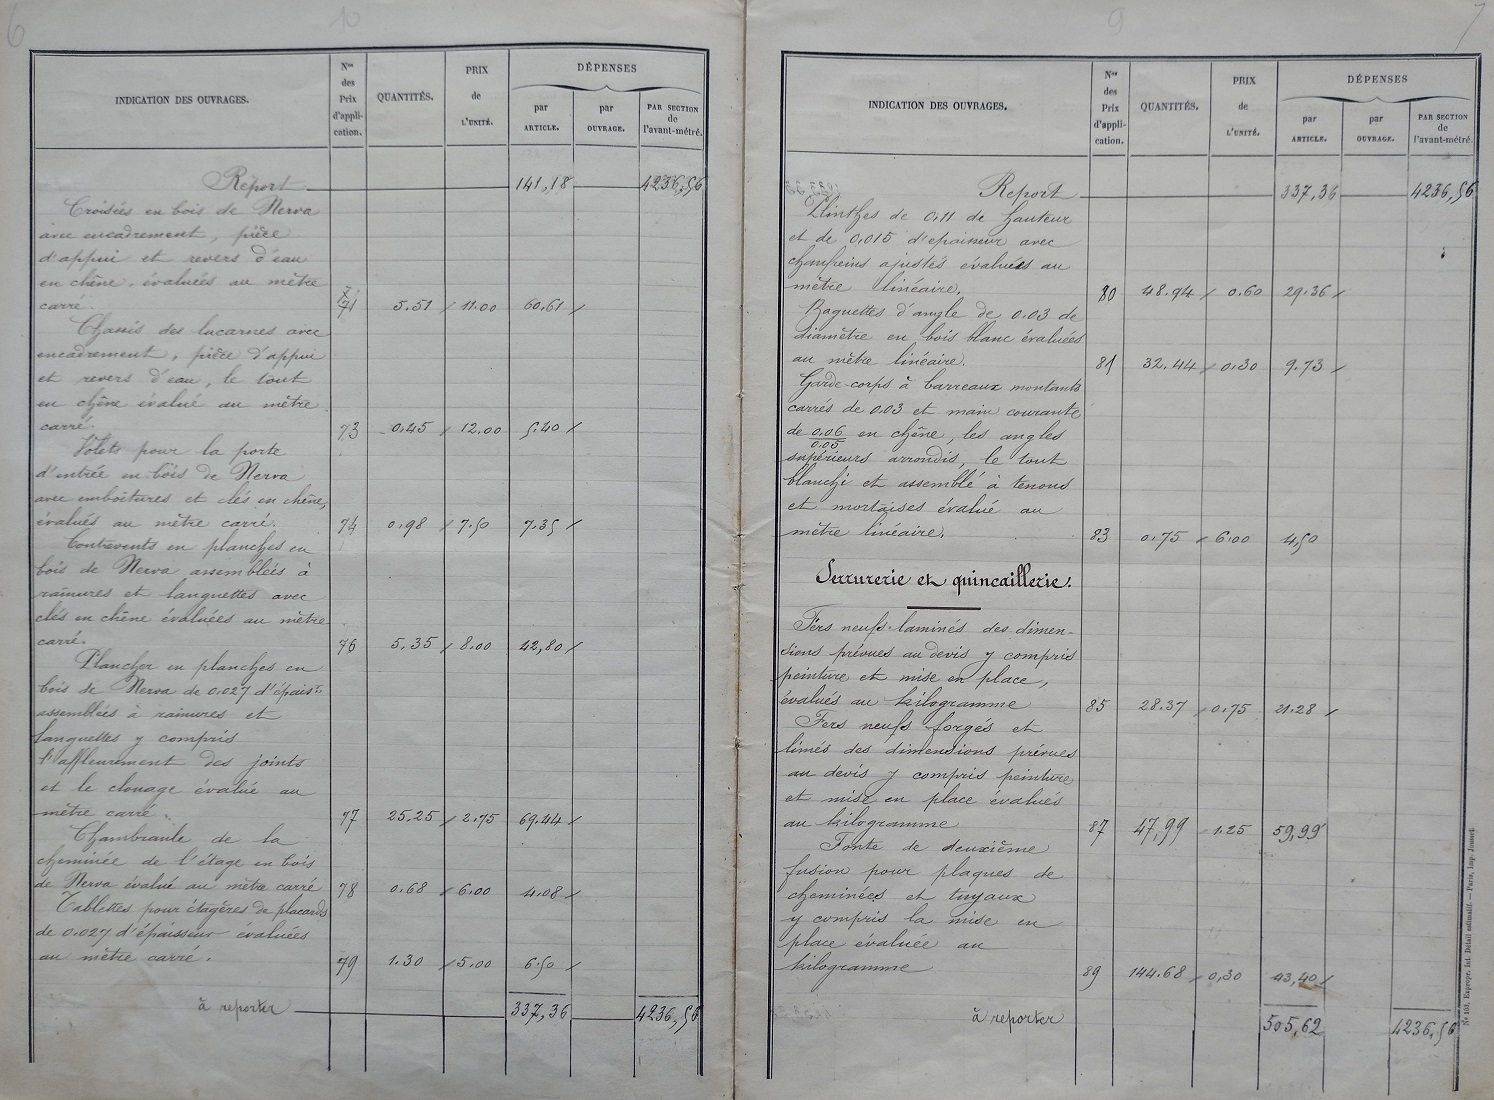 6
10
INDICATION DES OUVRAGES.
Nos des Prix d'appli-cation.
QUANTITÉS.
PRIX de L'UNITÉ.
DÉPENSES
par ARTICLE.
par OUVRAGE.
PAR SECTION de l'avant-métré.
Report 141,18 4236,56
Croisées en bois de Nerva
avec encadrement, pièce
d'appui et revers d'eau
en chêne, évaluées au mètre
carré. 71 5.51 11.00 60.61
Chassis des lucarnes avec
encadrement, pièce d'appui
et revers d'eau, le tout
en chêne évalué au mètre
carré. 73 0.45 12.00 5.40
Volets pour la porte
d'entrée en bois de Nerva
avec emboîtures et clés en chêne,
évalués au mètre carré. 74 0.98 7.50 7.35
Contrevents en planches en
bois de Nerva assemblés à
rainures et languettes avec
clés en chêne évaluées au mètre
carré. 76 5.35 8.00 42,80
Plancher en planches en
bois de Nerva de 0.027 d'épaisr.
assemblées à rainures et
languettes y compris
l'affleurement des joints
et le clouage évalué au
mètre carré. 77 25.25 2.75 69.44
Chambranle de la
cheminée de l'étage en bois
de Nerva évalué au mètre carré 78 0.68 6.00 4.08
Tablettes pour étagères de placards
de 0.027 d'épaisseur évaluées
au mètre carré. 79 1.30 5.00 6.50
à reporter 337,36 4236,56
9
7
INDICATION DES OUVRAGES.
Nos des Prix d'appli-cation.
QUANTITÉS.
PRIX de L'UNITÉ.
DÉPENSES
par ARTICLE.
par OUVRAGE.
PAR SECTION de l'avant-métré.
Report 337,36 4236,56
Plinthes de 0.11 de hauteur
et de 0.015 d'epaisseur avec
chanfreins ajustés évaluées au
mètre linéaire. 80 48.94 0.60 29.36
Baguettes d'angle de 0.03 de
diamètre en bois blanc évaluées
au mètre linéaire. 81 32.44 0.30 9.73
Garde-corps à barreaux montants
carrés de 0.03 et main courante
de 0.06/0.05 en chêne, les angles
supérieurs arrondis, le tout
blanchi et assemblé à tenons
et mortaises évalué au
mètre linéaire. 83 0.75 6.00 4,50
Serrurerie et quincaillerie.
Fers neufs laminés des dimen-
sions prévues au devis y compris
peinture et mise en place,
évalués au kilogramme 85 28.37 0.75 21.28
Fers neufs forgés et
limés des dimensions prévues
au devis y compris peinture
et mise en place évalués
au kilogramme 87 47,99 1.25 59,99
Fonte de deuxième
fusion pour plaques de
cheminées et tuyaux
y compris la mise en
place évaluée au
kilogramme 89 144.68 0,30 43,40
à reporter 505,62 4236,56
Nº 103. Exprope. Int. Détail estimatif. — Paris, Imp. Jousset.